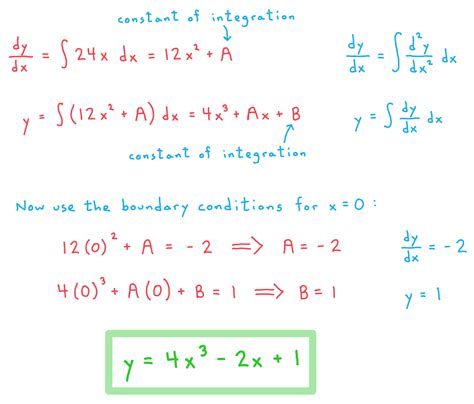 constant of integration
dy/dx = ∫ 24x dx = 12x² + A
dy/dx = ∫ d²y/dx² dx
y = ∫ (12x² + A) dx = 4x³ + Ax + B
y = ∫ dy/dx dx
constant of integration
Now use the boundary conditions for x = 0 :
12(0)² + A = -2 ⟹ A = -2
dy/dx = -2
4(0)³ + A(0) + B = 1 ⟹ B = 1
y = 1
y = 4x³ - 2x + 1